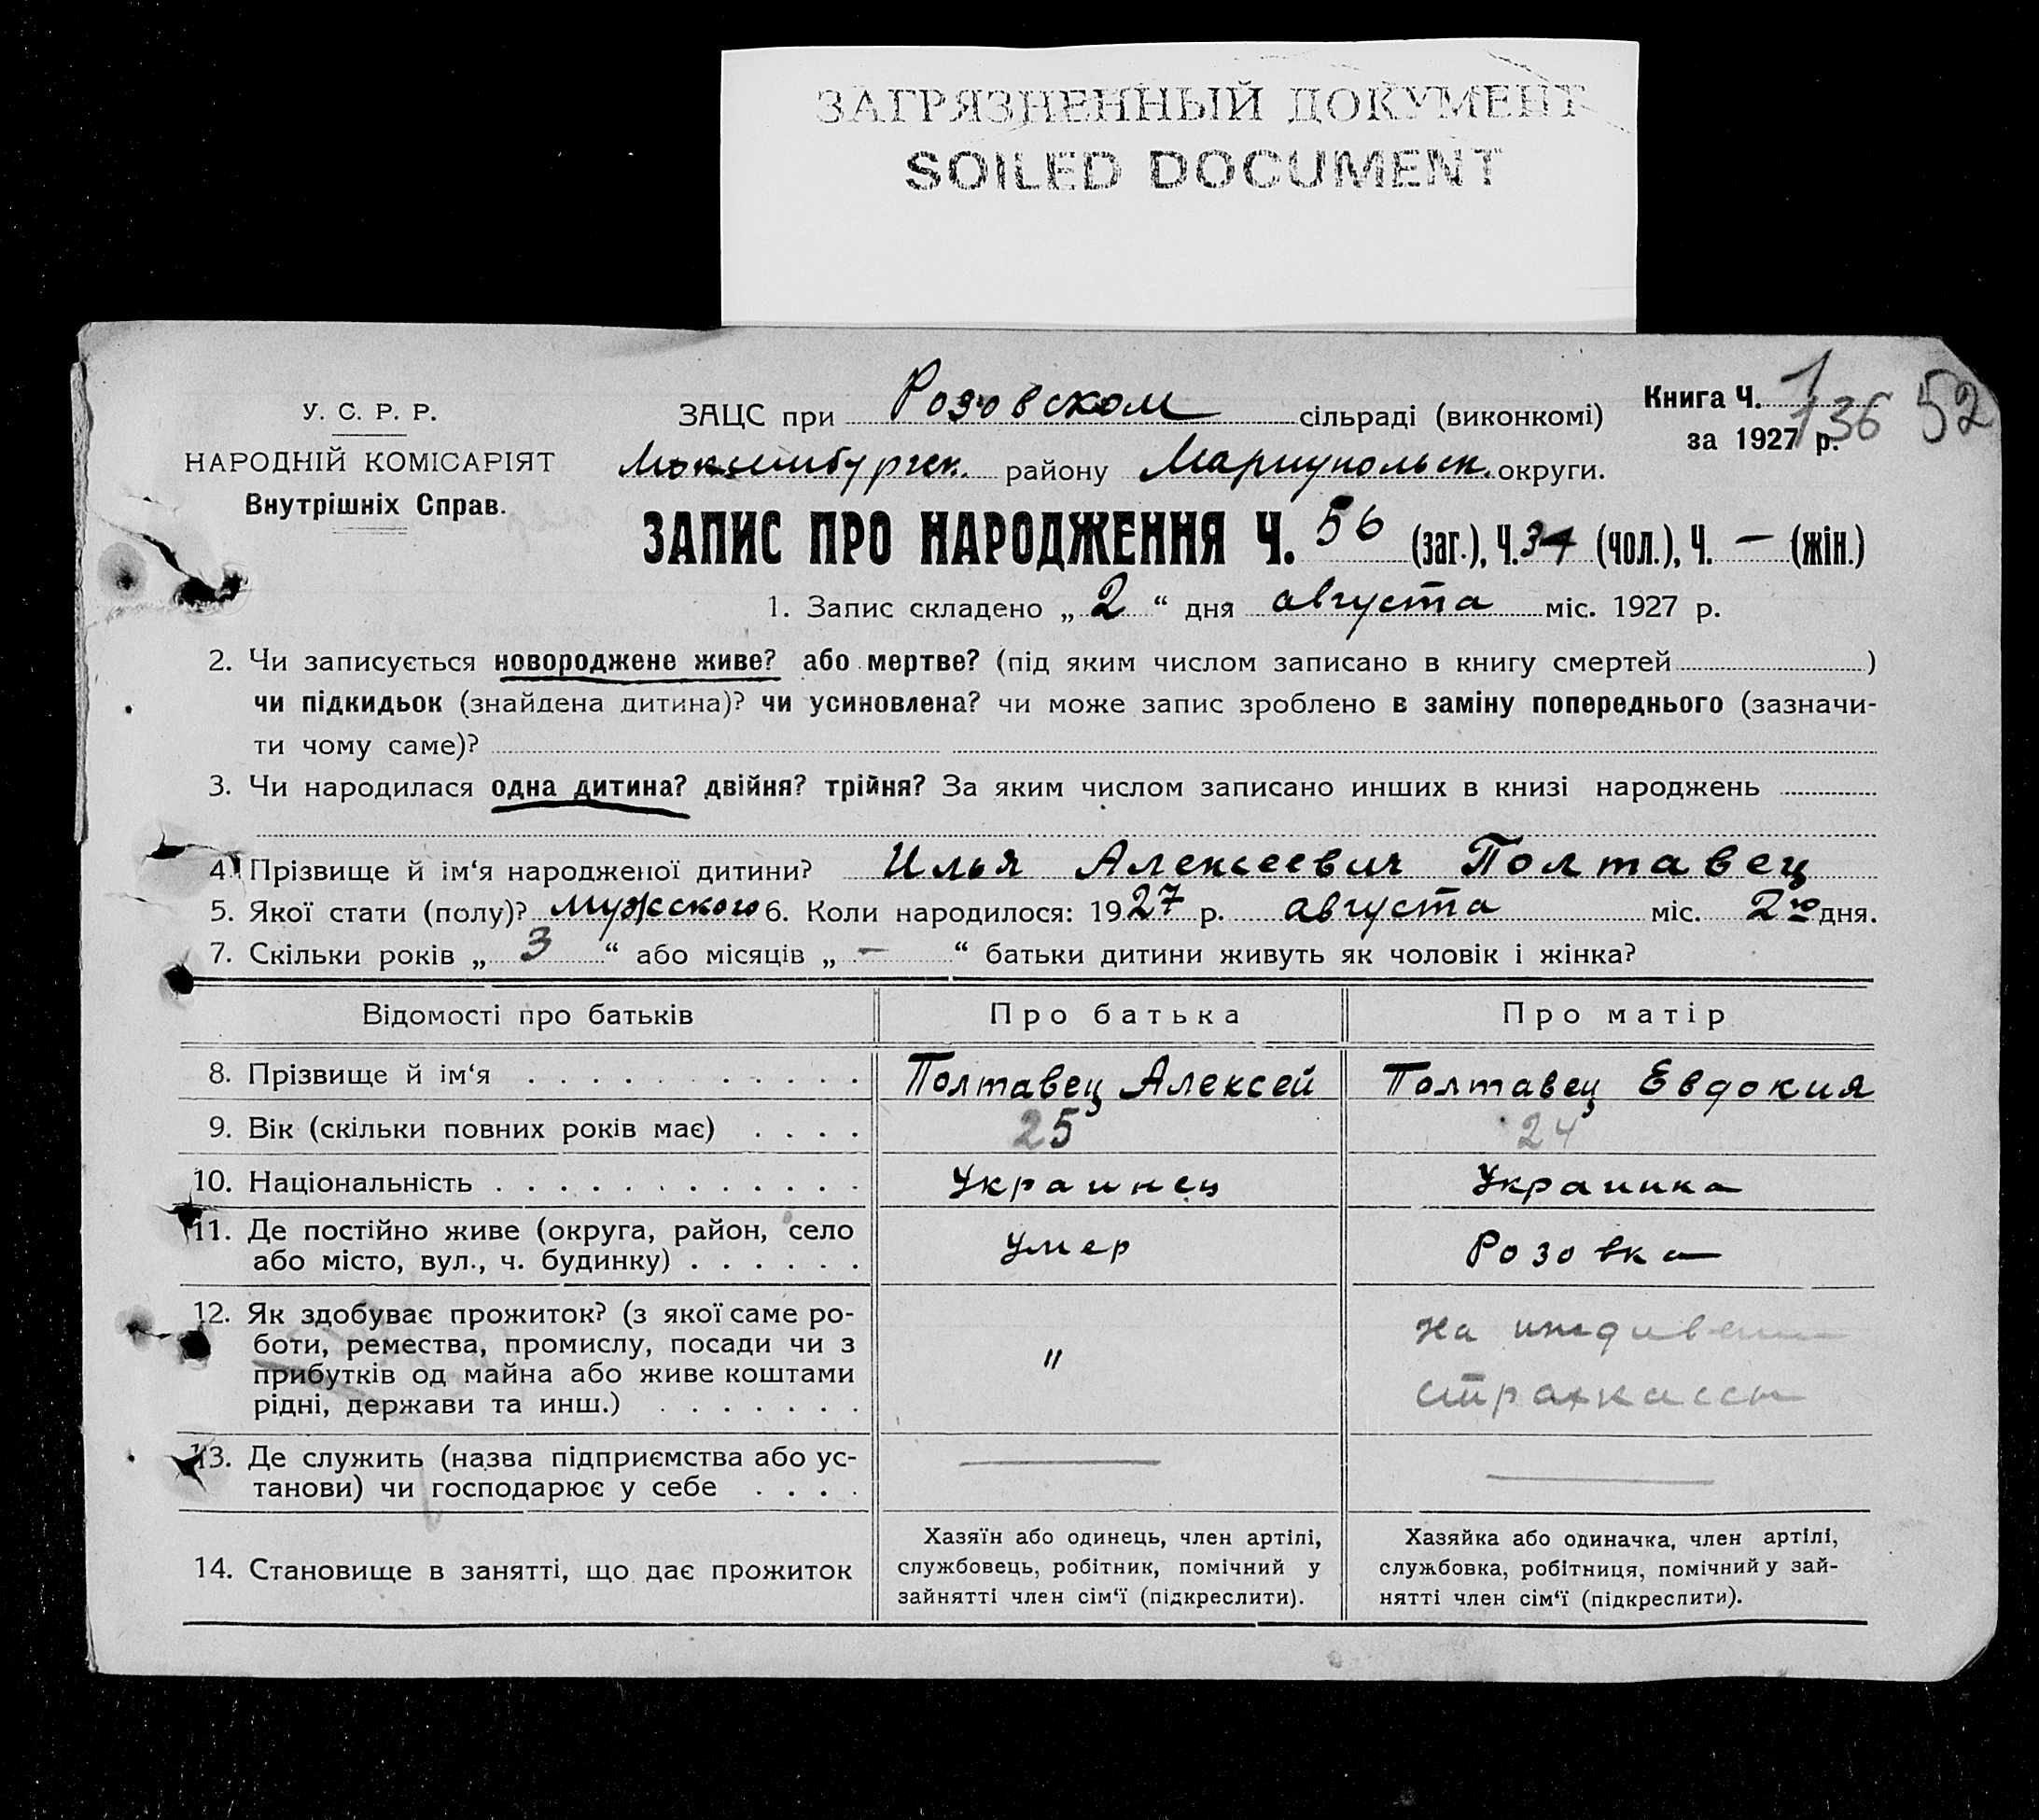 ЗАГРЯЗНЕННЫЙ ДОКУМЕНТ
SOILED DOCUMENT
У. С. Р. Р.
НАРОДНІЙ КОМІСАРІЯТ
Внутрішніх Справ.
ЗАЦС при Розовском сільраді (виконкомі)
району Мариупольск. округи.
Книга Ч. 1
за 1927 р.
136 52
ЗАПИС ПРО НАРОДЖЕННЯ Ч. 56 (заг.), Ч. (чол.), Ч. — (жін.)
1. Запис складено „ 2 “ дня августа міс. 1927 р.
2. Чи записується новороджене живе? або мертве? (під яким числом записано в книгу смертей )
чи підкидьок (знайдена дитина)? чи усиновлена? чи може запис зроблено в заміну попереднього (зазначи-
ти чому саме)?
3. Чи народилася одна дитина? двійня? трійня? За яким числом записано инших в книзі народжень
4. Прізвище й ім‘я народженої дитини? Илья Алексеевич Полтавец
5. Якої стати (полу)? мужского 6. Коли народилося: 1927 р. августа міс. 2го дня.
7. Скільки років „ 3 “ або місяців „ — “ батьки дитини живуть як чоловік і жінка?
Відомості про батьків Про батька Про матір
8. Прізвище й ім‘я . . . . . . . . . . . Полтавец Алексей Полтавец Евдокия
9. Вік (скільки повних років має) . . . . 25 24
10. Національність . . . . . . . . . . . . Украинец Украинка
11. Де постійно живе (округа, район, село
або місто, вул., ч. будинку) . . . . . . Умер Розовка
12. Як здобуває прожиток? (з якої саме ро-
боти, ремества, промислу, посади чи з
прибутків од майна або живе коштами
рідні, держави та инш.) . . . . . . .
"
на иждивении
страхкассы
13. Де служить (назва підприємства або ус-
танови) чи господарює у себе . . . .
14. Становище в занятті, що дає прожиток
Хазяїн або одинець, член артілі,
службовець, робітник, помічний у
зайнятті член сім‘ї (підкреслити).
Хазяйка або одиначка, член артілі,
службовка, робітниця, помічний у зай-
нятті член сім‘ї (підкреслити).